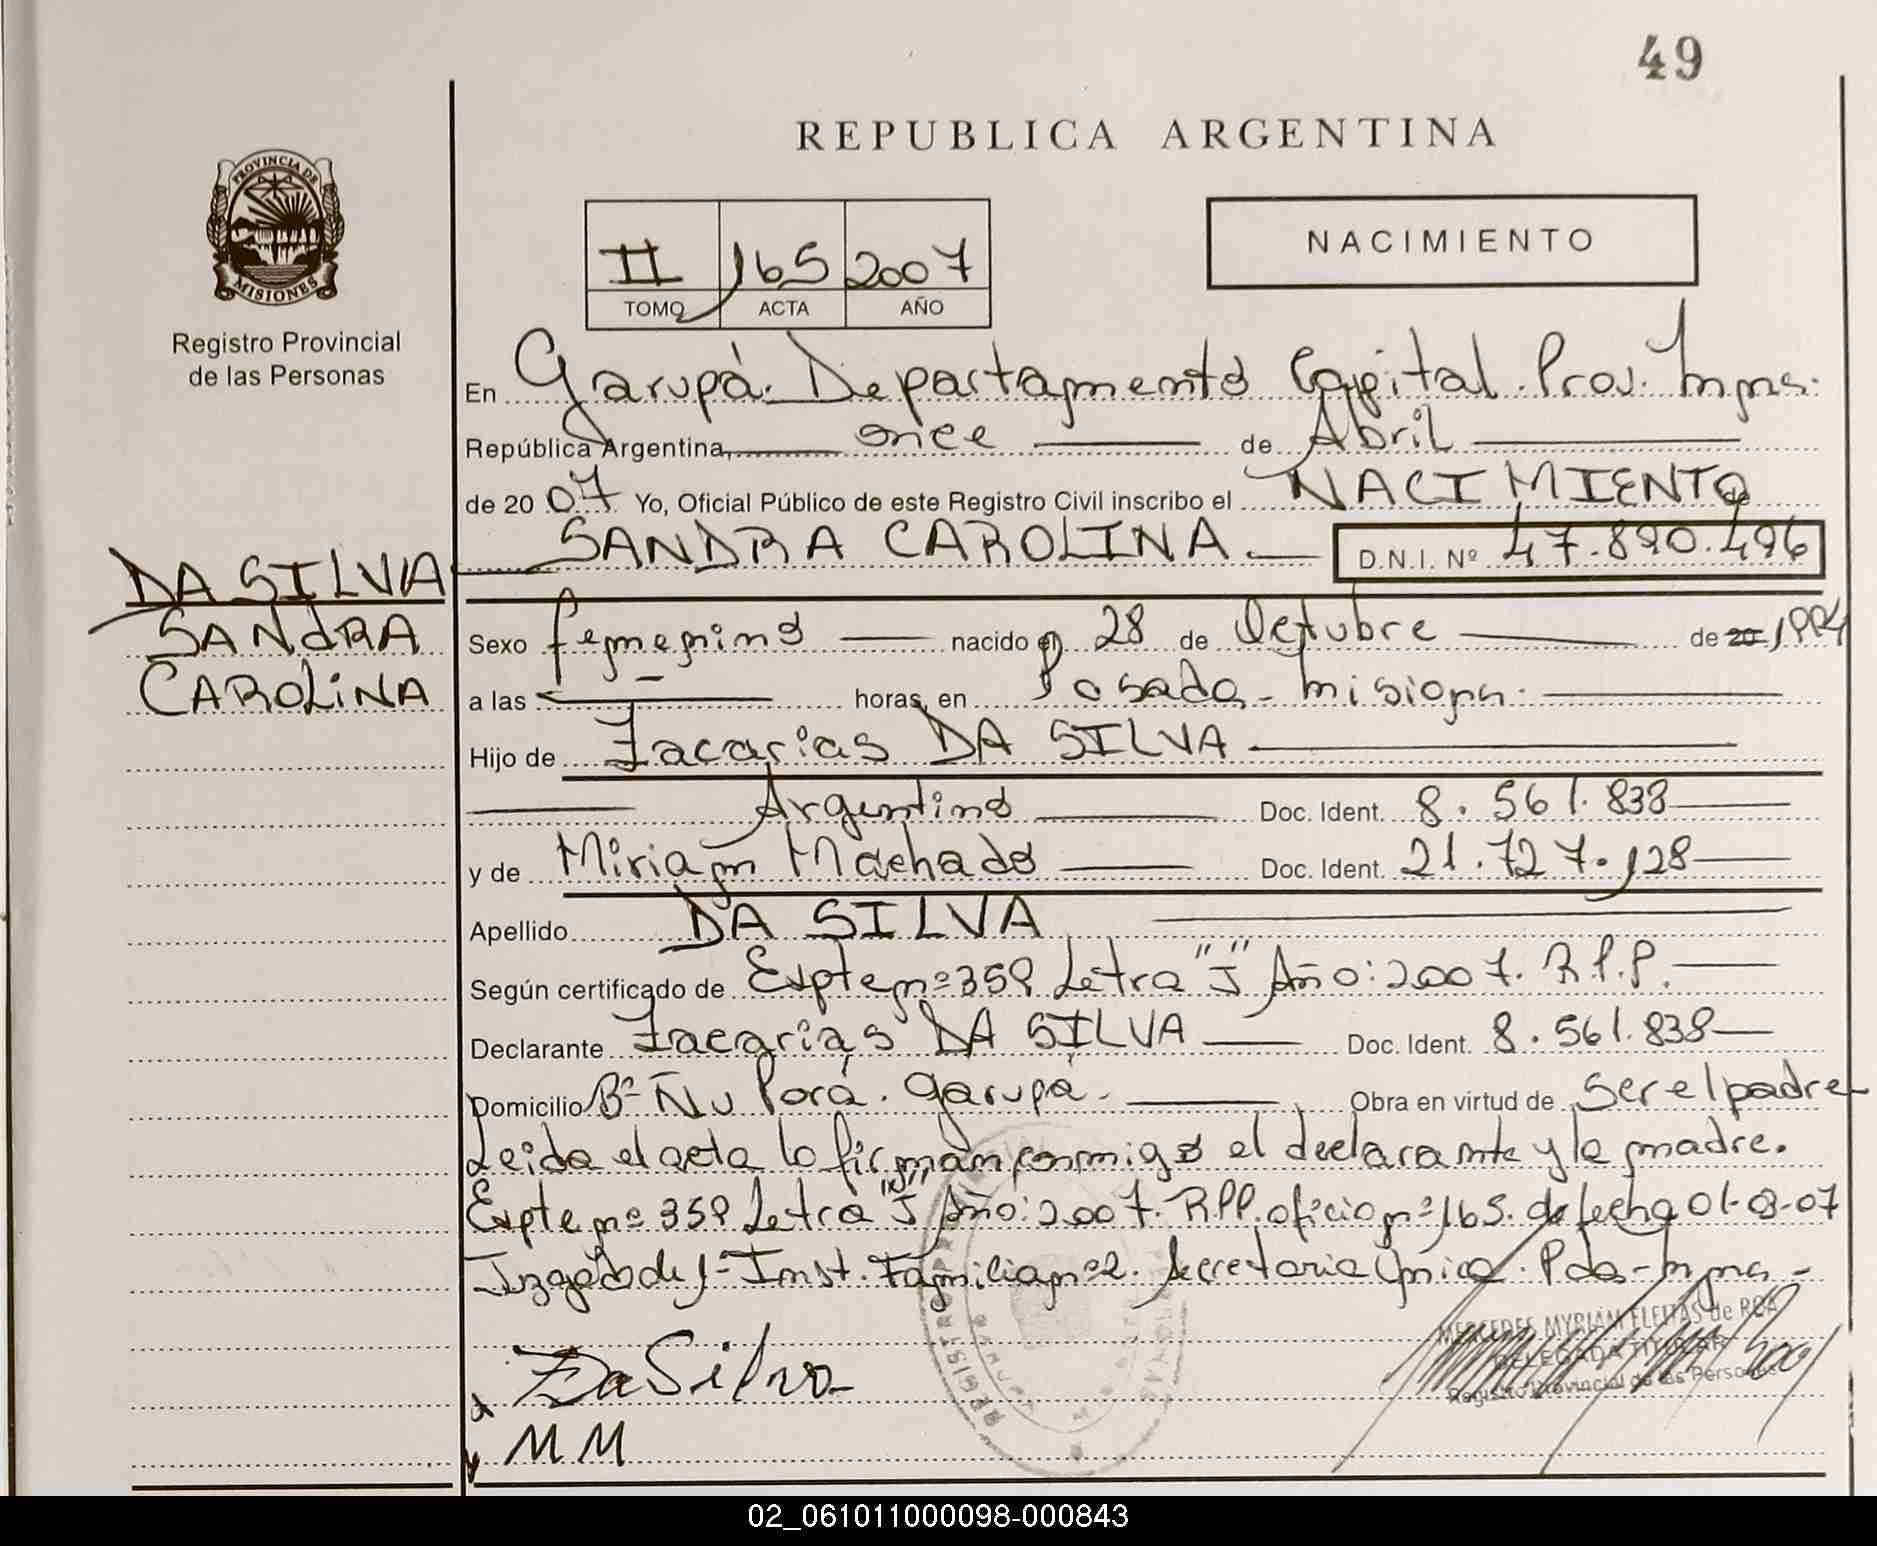 49
REPUBLICA ARGENTINA
PROVINCIA DE
MISIONES
Registro Provincial
de las Personas
II 165 2007
TOMO ACTA AÑO
NACIMIENTO
En Garupá. Departamento Capital. Prov. Mnes.
República Argentina, once de Abril
de 20 07 Yo, Oficial Público de este Registro Civil inscribo el NACIMIENTO
DA SILVA
SANDRA
CAROLINA
SANDRA CAROLINA D.N.I. Nº 47.890.496
Sexo femenino nacido el 28 de Octubre de 20 1994
a las horas, en Posadas - Misiones.
Hijo de Zacarias DA SILVA
Argentino Doc. Ident. 8.561.838
y de Miriam Machado Doc. Ident. 21.727.128
Apellido DA SILVA
Según certificado de Expte nº 359 Letra "J" Año: 2007. R.P.P.
Declarante Zacarias DA SILVA Doc. Ident. 8.561.838
Domicilio Bº Ñu Porá. Garupá. Obra en virtud de ser el padre
Leida el acta lo firman conmigo el declarante y la madre.
Expte nº 359 Letra "J" Año: 2007. RPP. oficio nº 165. de fecha 01-03-07
Juzgado de 1º Inst. Familia nº 2. Secretaria Unica. Pdas - Mnes -
MERCEDES MYRIAM FLEITAS de ROA
DELEGADA TITULAR
Registro Provincial de las Personas
Z Da Silva
M M
02_061011000098-000843